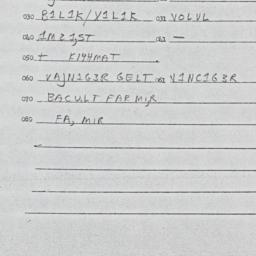 030 B1L1K/V1L1K 031 VOLVL
040 1M21,ST 041 —
050 + K144MAT .
060 VAJN1G3R GELT 061 V1NC1G3R
070 BACULT FAR MIR
080 FA, MIR